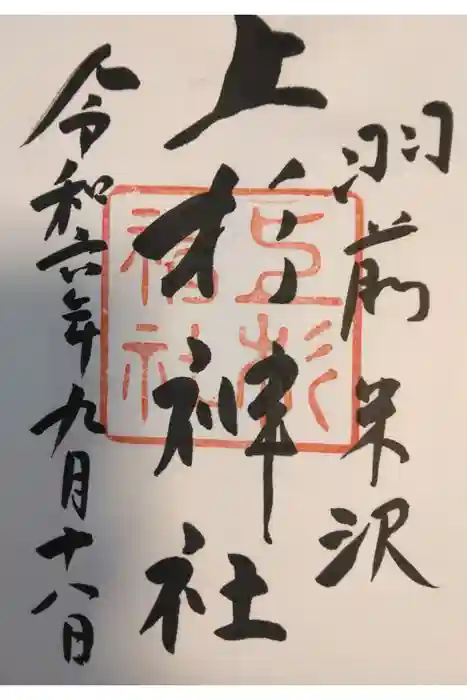 羽前米沢
上杉神社
令和六年九月十八日